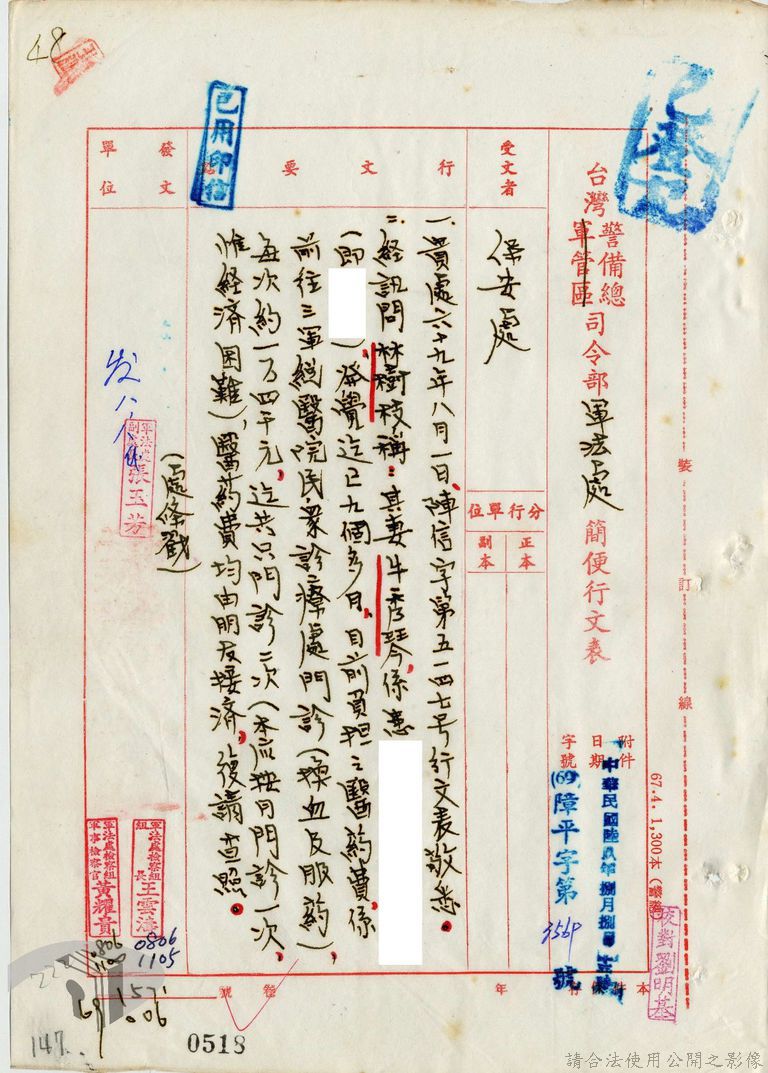 48
已登記
已用印信
台灣警備總
軍管區司令部軍法處簡便行文表
裝
訂
線
附件
日期
字號
中華民國陸玖年捌月捌日
(69)障平字第3569號
67.4. 1,300本
校對劉明基
受文者
保安處
分行單位
正本
副本
行文要
一、貴處六十九年八月一日、陣信字第五一四七号行文表敬悉。
二、経訊問林樹枝稱：其妻牛秀琴、係患
(即　　)、發覺迄已九個多月、目前負担之醫葯費、係
前往三軍總醫院民眾診療處門診(換血及服葯)、
每次約一万四千元、迄共只門診二次(本應按月門診一次、
惟経済困難)、醫葯費均由朋友接済、復請查照。
(處條戳)
發文
單位
发八、
軍法處
副處長張玉芳
軍法處檢察組
組長王雲濤
0806
1105
軍法處檢察組
軍事檢察官黃耀貴
0806
1100
本件保存
年
卷
號
1571
69
06
147
0518
請合法使用公開之影像